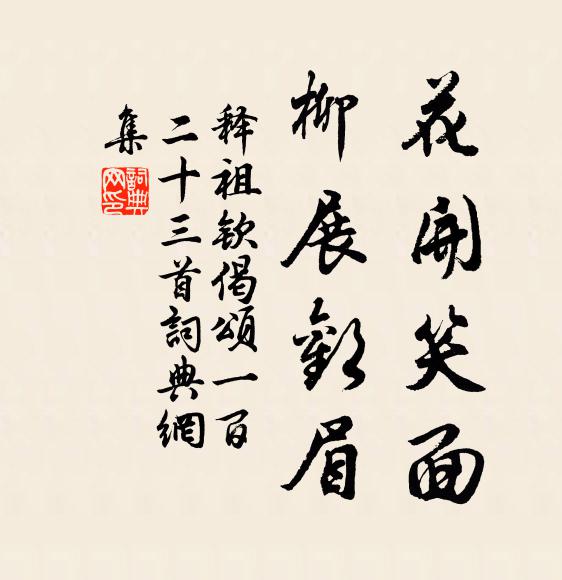 花開笑面
柳展歡眉
释祖欽偈頌一百
二十三首詞典網
集
詞典网印